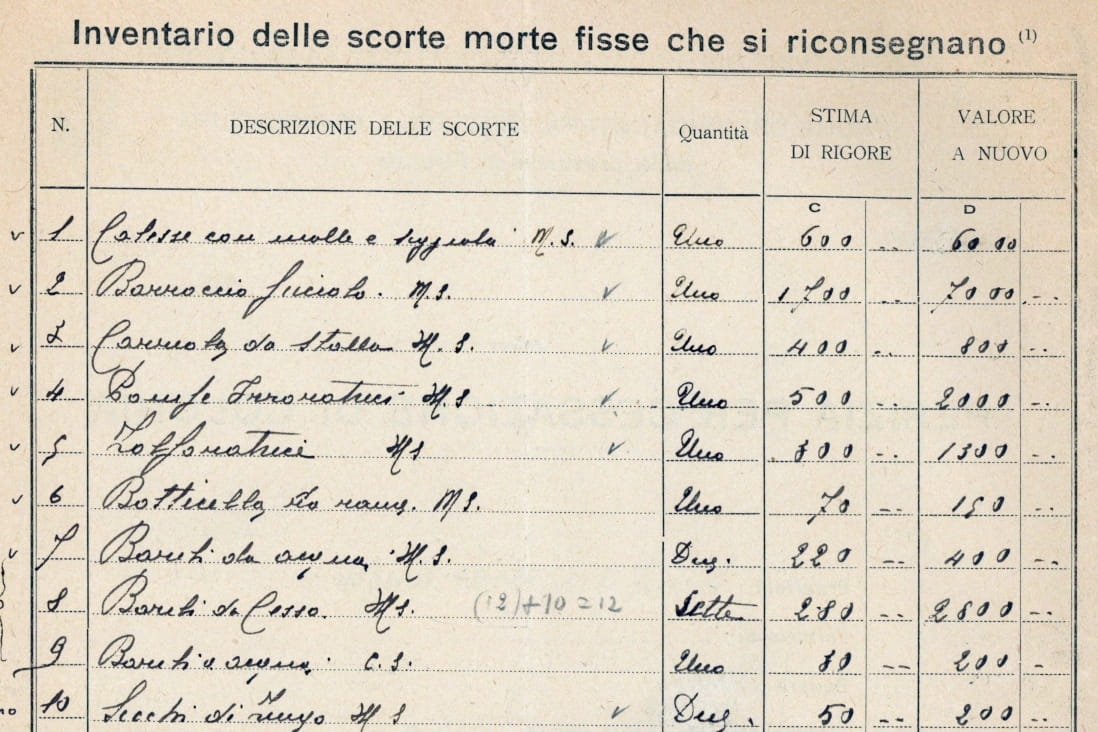 Inventario delle scorte morte fisse che si riconsegnano (1)
N. DESCRIZIONE DELLE SCORTE Quantità STIMA DI RIGORE VALORE A NUOVO
C D
1 Calesse con molle e M.S. Uno 600 6000
2 Barroccio M.S. Uno 1700 7000
3 Carriola da stalla M.S. Uno 400 800
4 Pompe Irroratrici M.S. Uno 500 2000
5 Zolforatrici MS Uno 1300
6 Botticella M.S. Uno 70 150
7 Barili da acqua M.S. Due 220 400
8 Barili da Cesso. MS. (12)+10=12 Sette 280 2800
9 Barili a acqua C.S. Uno 200
10 Secchi di MS Due 50 200